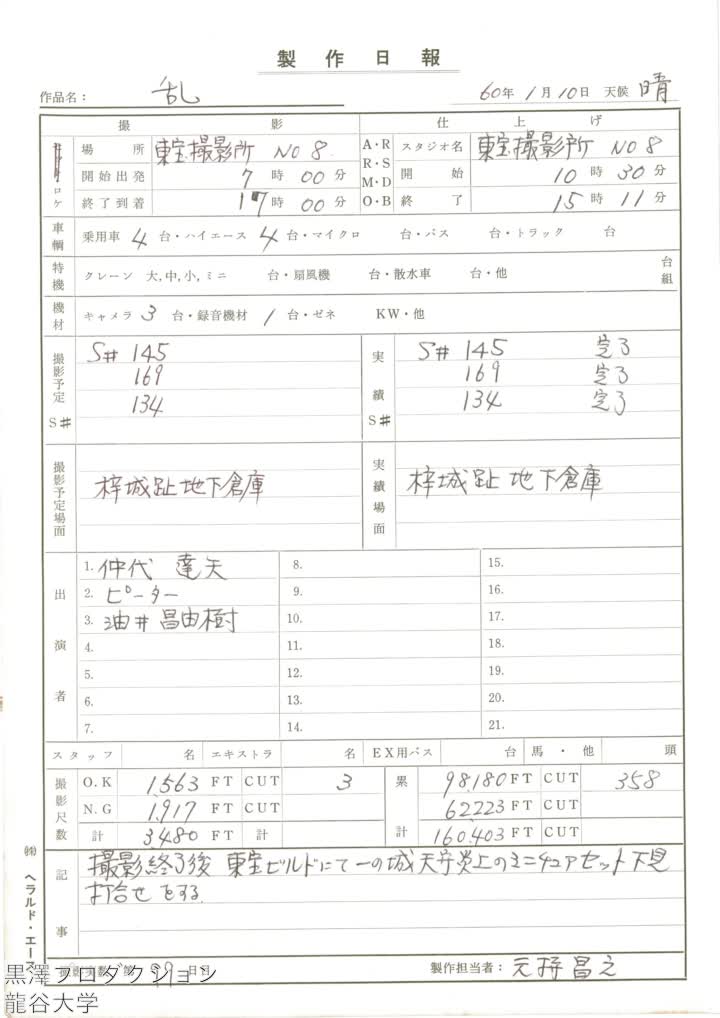 製作日報
作品名: 乱 60年 1月 10日 天候 晴
撮影 仕上げ
ロケ 場所 東宝撮影所 NO 8 A・R R・S M・D O・B スタジオ名 東宝撮影所 NO 8
開始出発 7時 00分 開始 10時 30分
終了到着 17時 00分 終了 15時 11分
車輌 乗用車 4 台・ハイエース 4 台・マイクロ 台・バス 台・トラック 台
特機 クレーン 大,中,小,ミニ 台・扇風機 台・散水車 台・他 台組
機材 キャメラ 3 台・録音機材 1 台・ゼネ KW・他
撮影予定 S# S#145 実績 S# S#145 完了
169 169 完了
134 134 完了
撮影予定場面 梓城趾地下倉庫 実績場面 梓城趾地下倉庫
出演者
1. 仲代達矢 8. 15.
2. ピーター 9. 16.
3. 油井昌由樹 10. 17.
4. 11. 18.
5. 12. 19.
6. 13. 20.
7. 14. 21.
スタッフ 名 エキストラ 名 EX用バス 台 馬・他 頭
撮影尺数 O.K 1,563 FT CUT 3 累計 98,180 FT CUT 358
N.G 1,917 FT CUT 62,223 FT CUT
計 3,480 FT 計 160,403 FT CUT
記事 撮影終了後 東宝ビルドにて一の城天守炎上のミニチュアセット下見
打合せをする
㈱ヘラルド・エース
日目 製作担当者: 元持昌之
黒澤プロダクション
龍谷大学